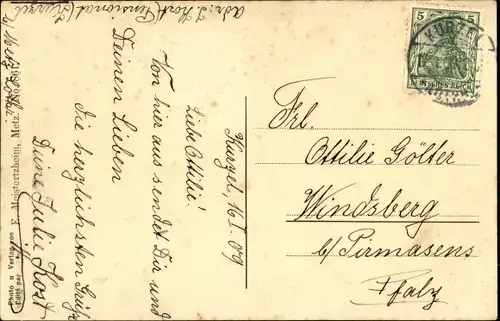 adr: J. Kost (Pensionat) Kurzel
b/ Metz Lothr.
Kurzel, 16. I. 09
Liebe Ottilie!
Von hier aus sendet Dir und
Deinen Lieben
die herzlichsten Grüße
Deine Julie Kost
Photo u Verlag von E. Monstortzheim, Metz.
Edité par
5
KURZEL
DEUTSCHES REICH
Frl.
Ottilie Gölter
Windsberg
b/ Pirmasens
Pfalz